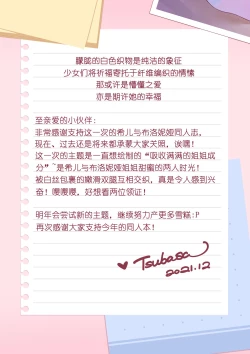 朦胧的白色织物是纯洁的象征
少女们将祈福寄托于纤维编织的情愫
那或许是懵懂之爱
亦是期许她的幸福
至亲爱的小伙伴：
非常感谢支持这一次的希儿与布洛妮娅同人志。
现在、过去还是将来都承蒙大家关照，诶嘿！
这一次的主题是一直想绘制的“吸收满满的姐姐成
分”~是希儿与布洛妮娅姐姐甜蜜的两人时光！
被白丝包裹的嫩滑双腿互相交织，真是令人感到兴
奋！嘤嘤嘤，好想看两位领证！
明年会尝试新的主题，继续努力产更多雪糕：P
再次感谢大家支持今年的同人本！
Tsubasa
2021.12